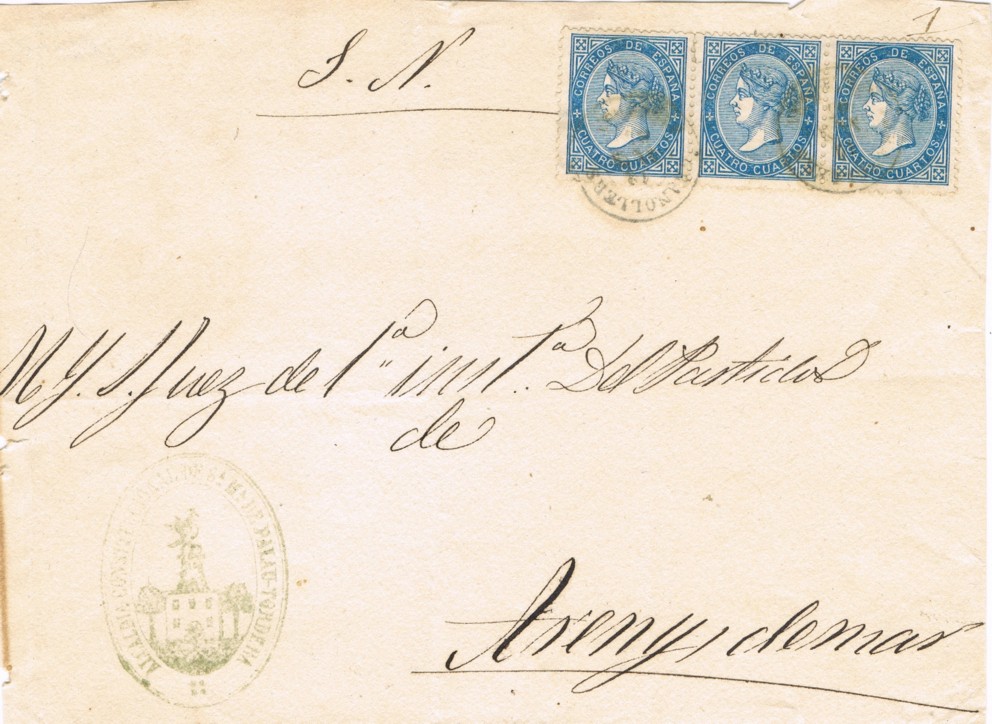 1
S. N.
CORREOS DE ESPAÑA
CUATRO CUARTOS
CORREOS DE ESPAÑA
CUATRO CUARTOS
CORREOS DE ESPAÑA
CUATRO CUARTOS
GRANOLLERS
M. Y. S. Juez de 1ª instª. Del Partido
de
ALCALDIA CONSTITUCIONAL DE STA. MA. DE PALAU-TORDERA
Areny, de mar